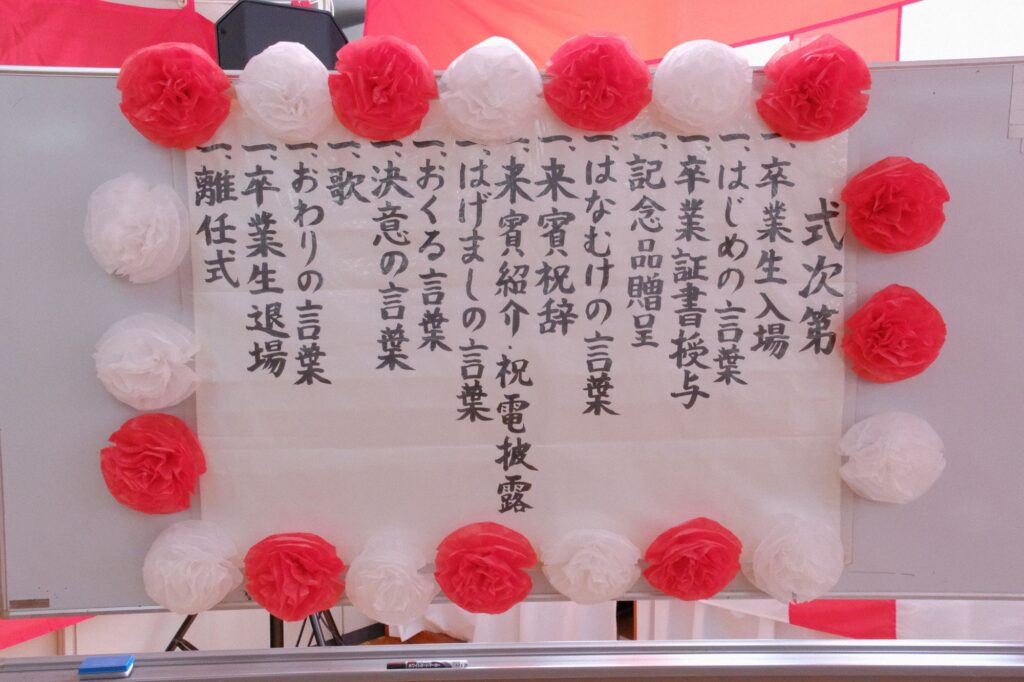 式次第
一、卒業生入場
一、はじめの言葉
一、卒業証書授与
一、記念品贈呈
一、はなむけの言葉
一、来賓祝辞
一、来賓紹介・祝電披露
一、はげましの言葉
一、おくる言葉
一、決意の言葉
一、歌
一、おわりの言葉
一、卒業生退場
一、離任式